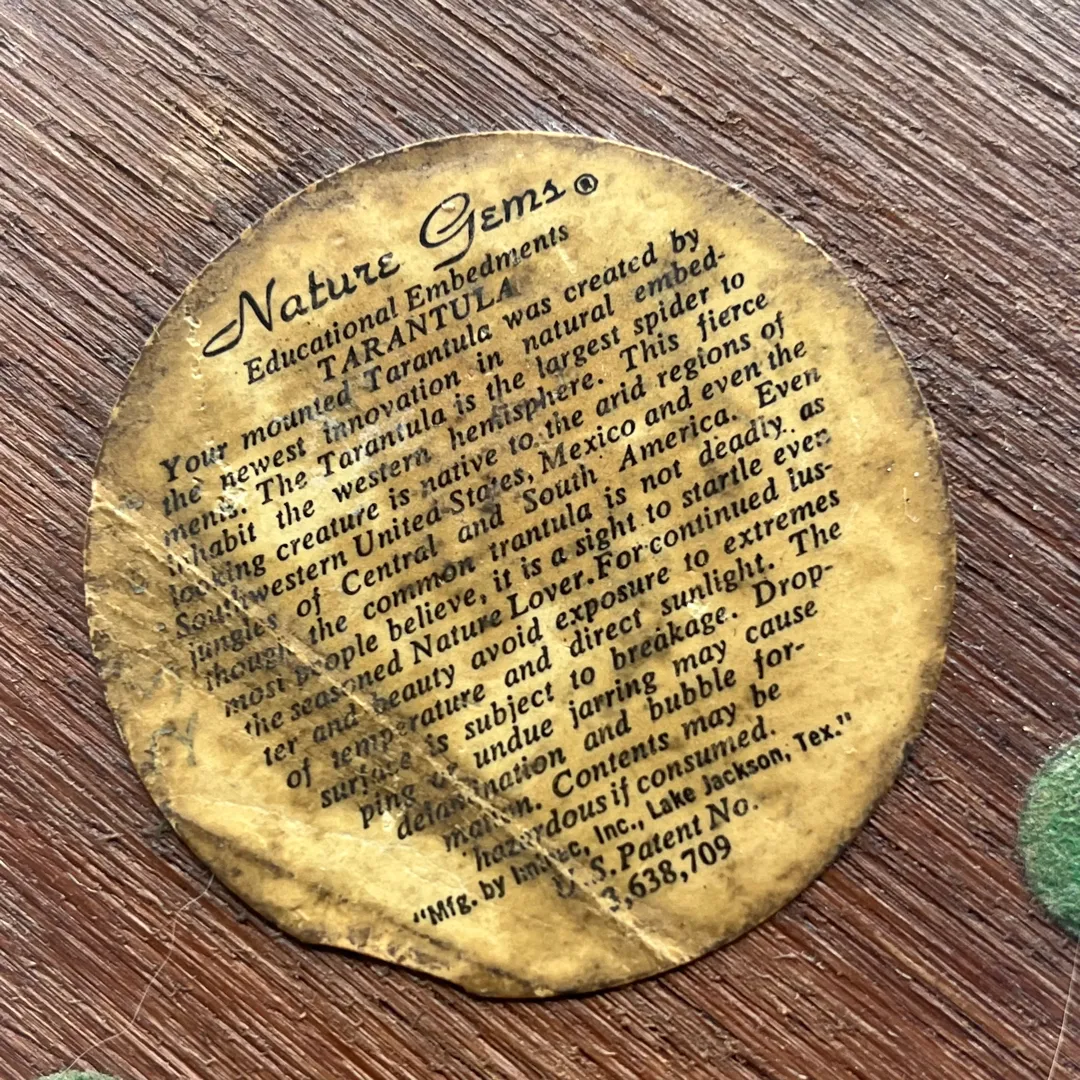 Nature Gems®
Educational Embedments
TARANTULA
Your mounted Tarantula was created by
the newest innovation in natural embed-
ments. The Tarantula is the largest spider to
inhabit the western hemisphere. This fierce
looking creature is native to the arid regions of
Southwestern United States, Mexico and even the
jungles of Central and South America. Even
though the common trantula is not deadly as
most people believe, it is a sight to startle even
the seasoned Nature Lover. For continued lus-
ter and beauty avoid exposure to extremes
of temperature and direct sunlight. The
surface is subject to breakage. Drop-
ping or undue jarring may cause
delamination and bubble for-
mation. Contents may be
hazardous if consumed.
"Mfg. by Inc., Lake Jackson, Tex."
U.S. Patent No.
3,638,709